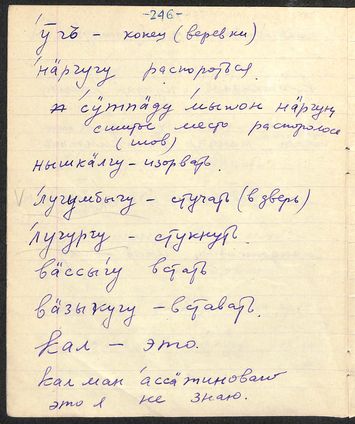 -246-
ӱ́гъ - конец (веревки)
нӓ́рӷугу распороться.
сӱ̈тпӓду мы́пон нӓрӷуң
сшитое место распоролось
(шов)
нышкӓлгу - изорвать.
лу́ӷумбыгу - стучать (в дверь)
лу́ӷурӷу - стукнуть.
вӓссы́гу встать
вӓзыкугу - вставать.
кал - это.
кал ман а́ссӓ тиноваӈ
это я не знаю.